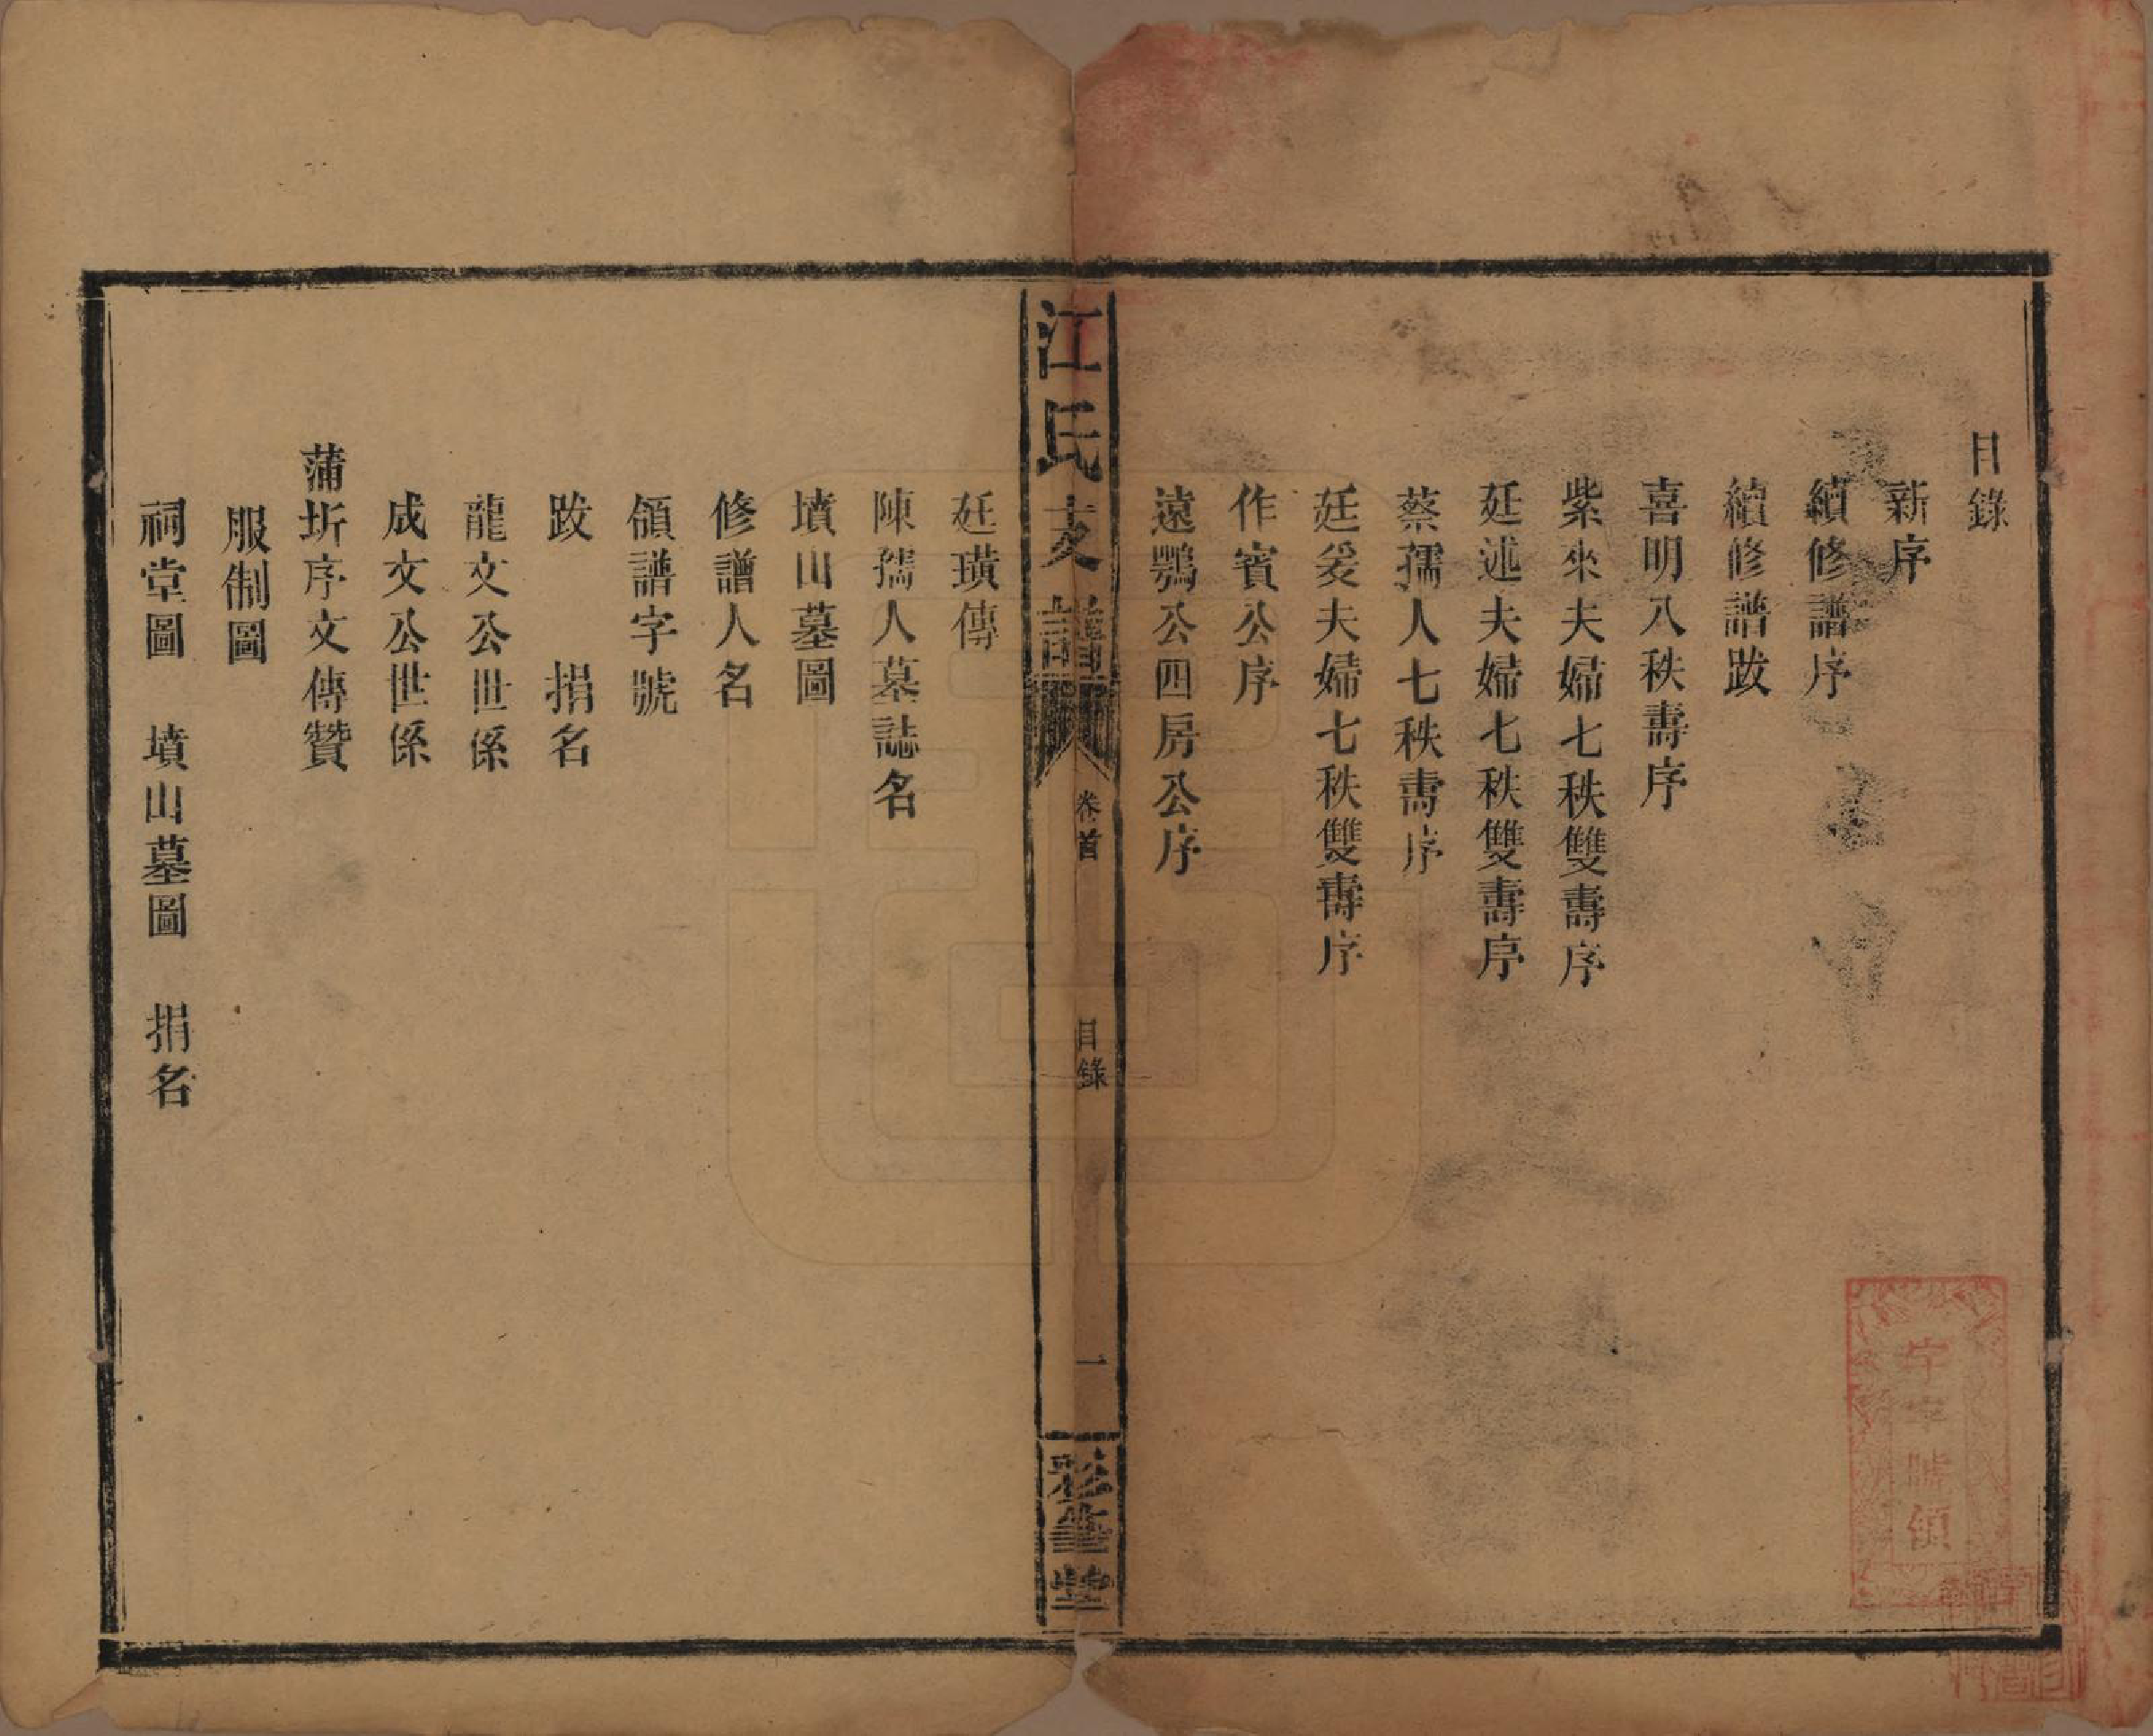 目錄
新序
續修譜序
續修譜跋
喜明八秩壽序
紫來夫婦七秩雙壽序
廷述夫婦七秩雙壽序
蔡孺人七秩壽序
廷爰夫婦七秩雙壽序
作賓公序
遠鶚公四房公序
江氏支譜 卷首 目錄 一 彩筆堂
廷璜傳
陳孺人墓誌名
墳山墓圖
修譜人名
領譜字號
跋 捐名
龍文公世係
成文公世係
蒲圻序文傳贊
服制圖
祠堂圖 墳山墓圖 捐名
字號領